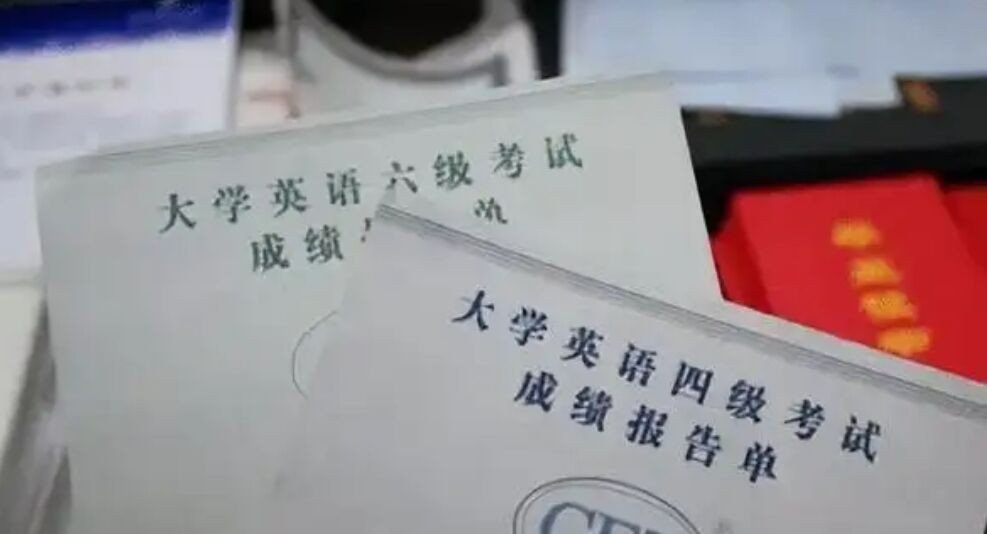 大学英语六级考试
成绩
单
大学英语四级考试
成绩报告单
CET